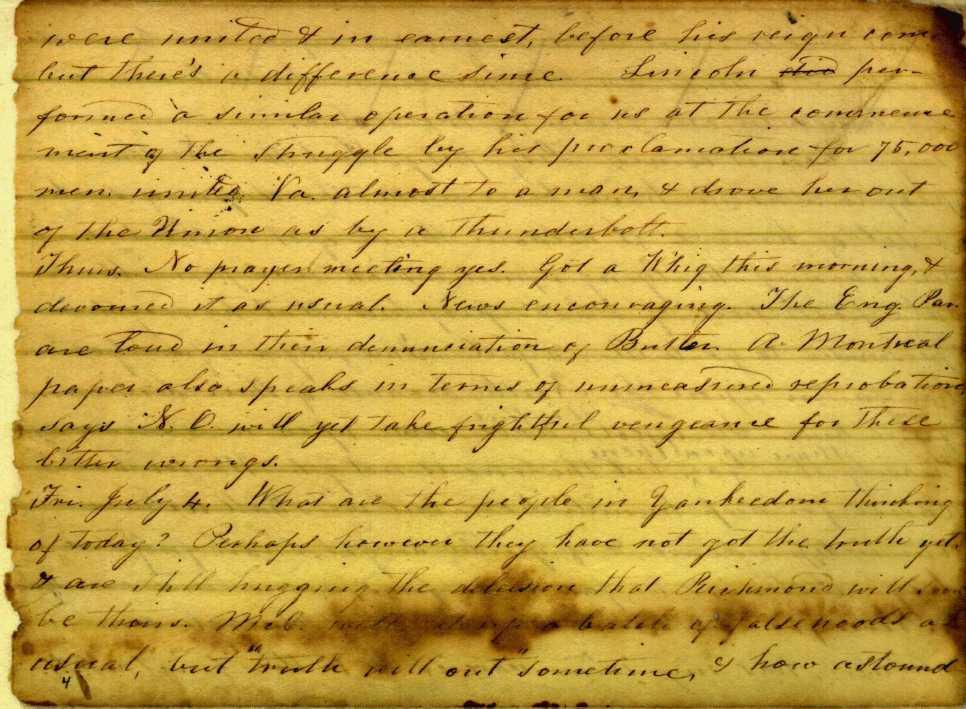 were united & in earnest, before his reign com
but there's a difference since. Lincoln did per-
formed a similar operation for us at the commence
ment of the struggle by his proclamation for 75,000
men. united Va. almost to a man, & drove her out
of the Union as by a thunderbolt.
Thurs. No prayer meeting yes. Got a Whig this morning, &
devoured it as usual. News encouraging. The Eng. Par.
are loud in their denunciation of Butler. A Montreal
paper also speaks in terms of unmeasured reprobation,
says N. O. will yet take frightful vengeance for these
bitter wrongs.
Fri. July 4. What are the people in Yankeedom thinking
of today? Perhaps however they have not got the truth yet,
& are still hugging the delusion that Richmond will soon
be theirs. McC. will a batch of falsehoods as
usual, but "truth will out" sometime, & how astound
4